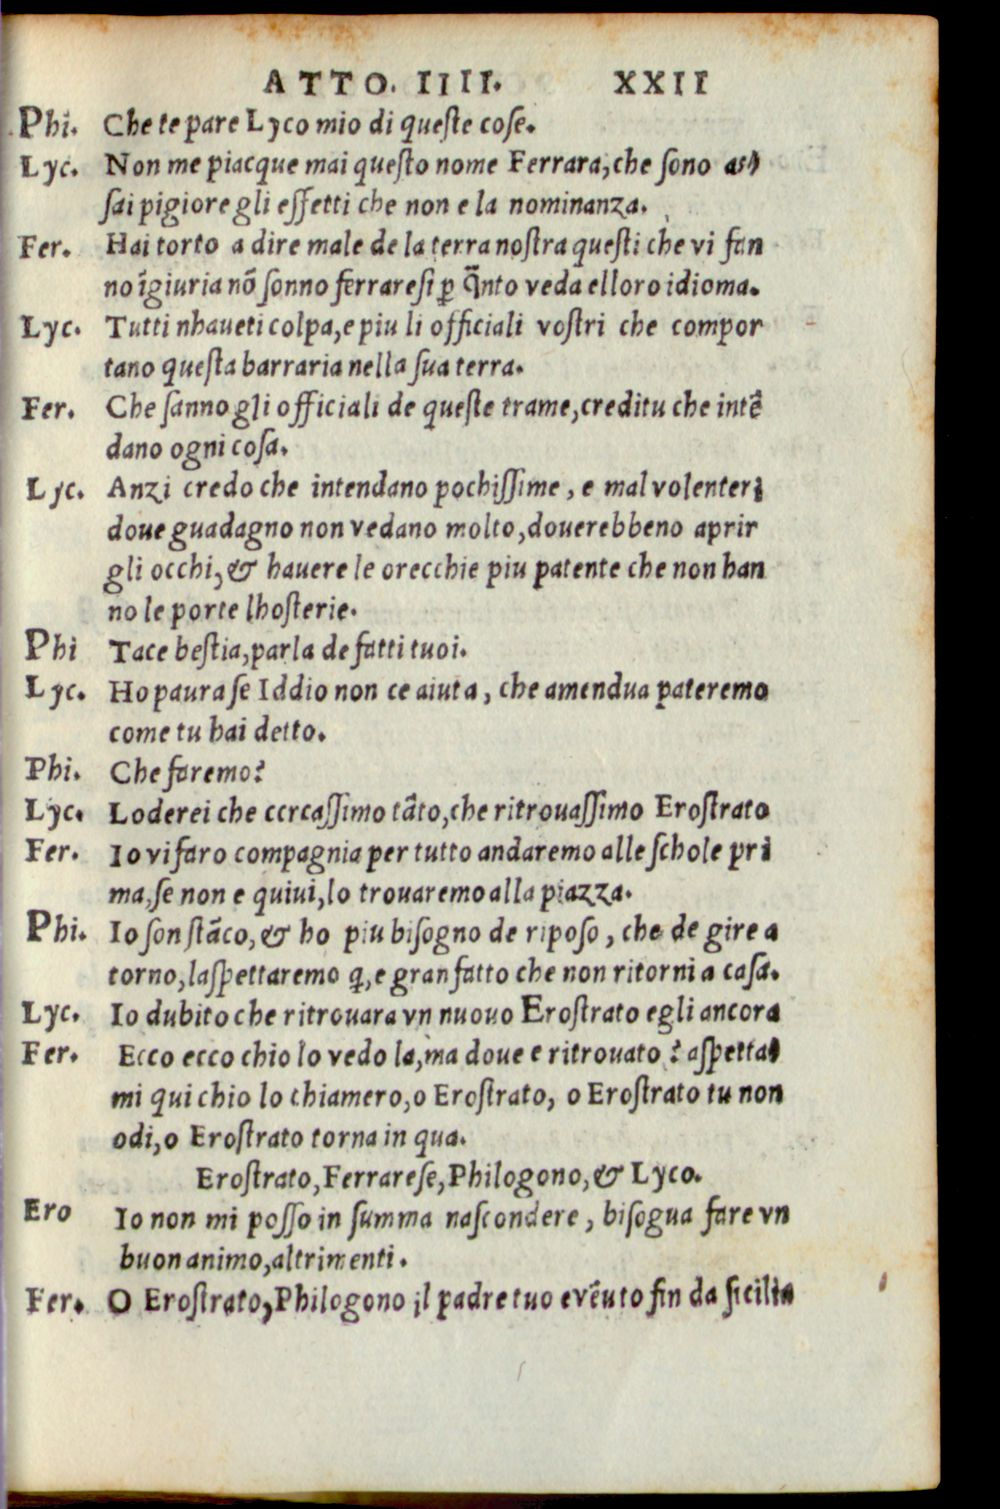 ATTO. IIII. XXII
Phi. Che te pare Lyco mio di queſte coſe.
Lyc. Non me piacque mai queſto nome Ferrara, che ſono aſ
ſai pigiore gli effetti che non e la nominanza.
Fer. Hai torto a dire male de la terra noſtra queſti che vi fan
no īgiuria nō ſonno ferrareſi ꝑ q̄nto veda elloro idioma.
Lyc. Tutti nhaueti colpa, e piu li officiali voſtri che compor
tano queſta barraria nella ſua terra.
Fer. Che ſanno gli officiali de queſte trame, creditu che intē
dano ogni coſa.
Lyc. Anzi credo che intendano pochiſſime, e mal volenteri
doue guadagno non vedano molto, douerebbeno aprir
gli occhi, & hauere le orecchie piu patente che non han
no le porte lhoſterie.
Phi Tace beſtia, parla de fatti tuoi.
Lyc. Ho paura ſe Iddio non ce aiuta, che amendua pateremo
come tu hai detto.
Phi. Che faremo?
Lyc. Loderei che cercaſſimo tāto, che ritrouaſſimo Eroſtrato
Fer. Io vi faro compagnia per tutto andaremo alle ſchole pri
ma, ſe non e quiui, lo trouaremo alla piazza.
Phi. Io ſon ſtāco, & ho piu biſogno de ripoſo, che de gire a
torno, laſpettaremo q̄, e gran fatto che non ritorni a caſa.
Lyc. Io dubito che ritrouara vn nuouo Eroſtrato egli ancora
Fer. Ecco ecco chio lo vedo la, ma doue e ritrouato? aſpetta
mi qui chio lo chiamero, o Eroſtrato, o Eroſtrato tu non
odi, o Eroſtrato torna in qua.
Eroſtrato, Ferrareſe, Philogono, & Lyco.
Ero Io non mi poſſo in ſumma naſcondere, biſogua fare vn
buon animo, altrimenti.
Fer. O Eroſtrato, Philogono il padre tuo e vēuto fin da ſicilia